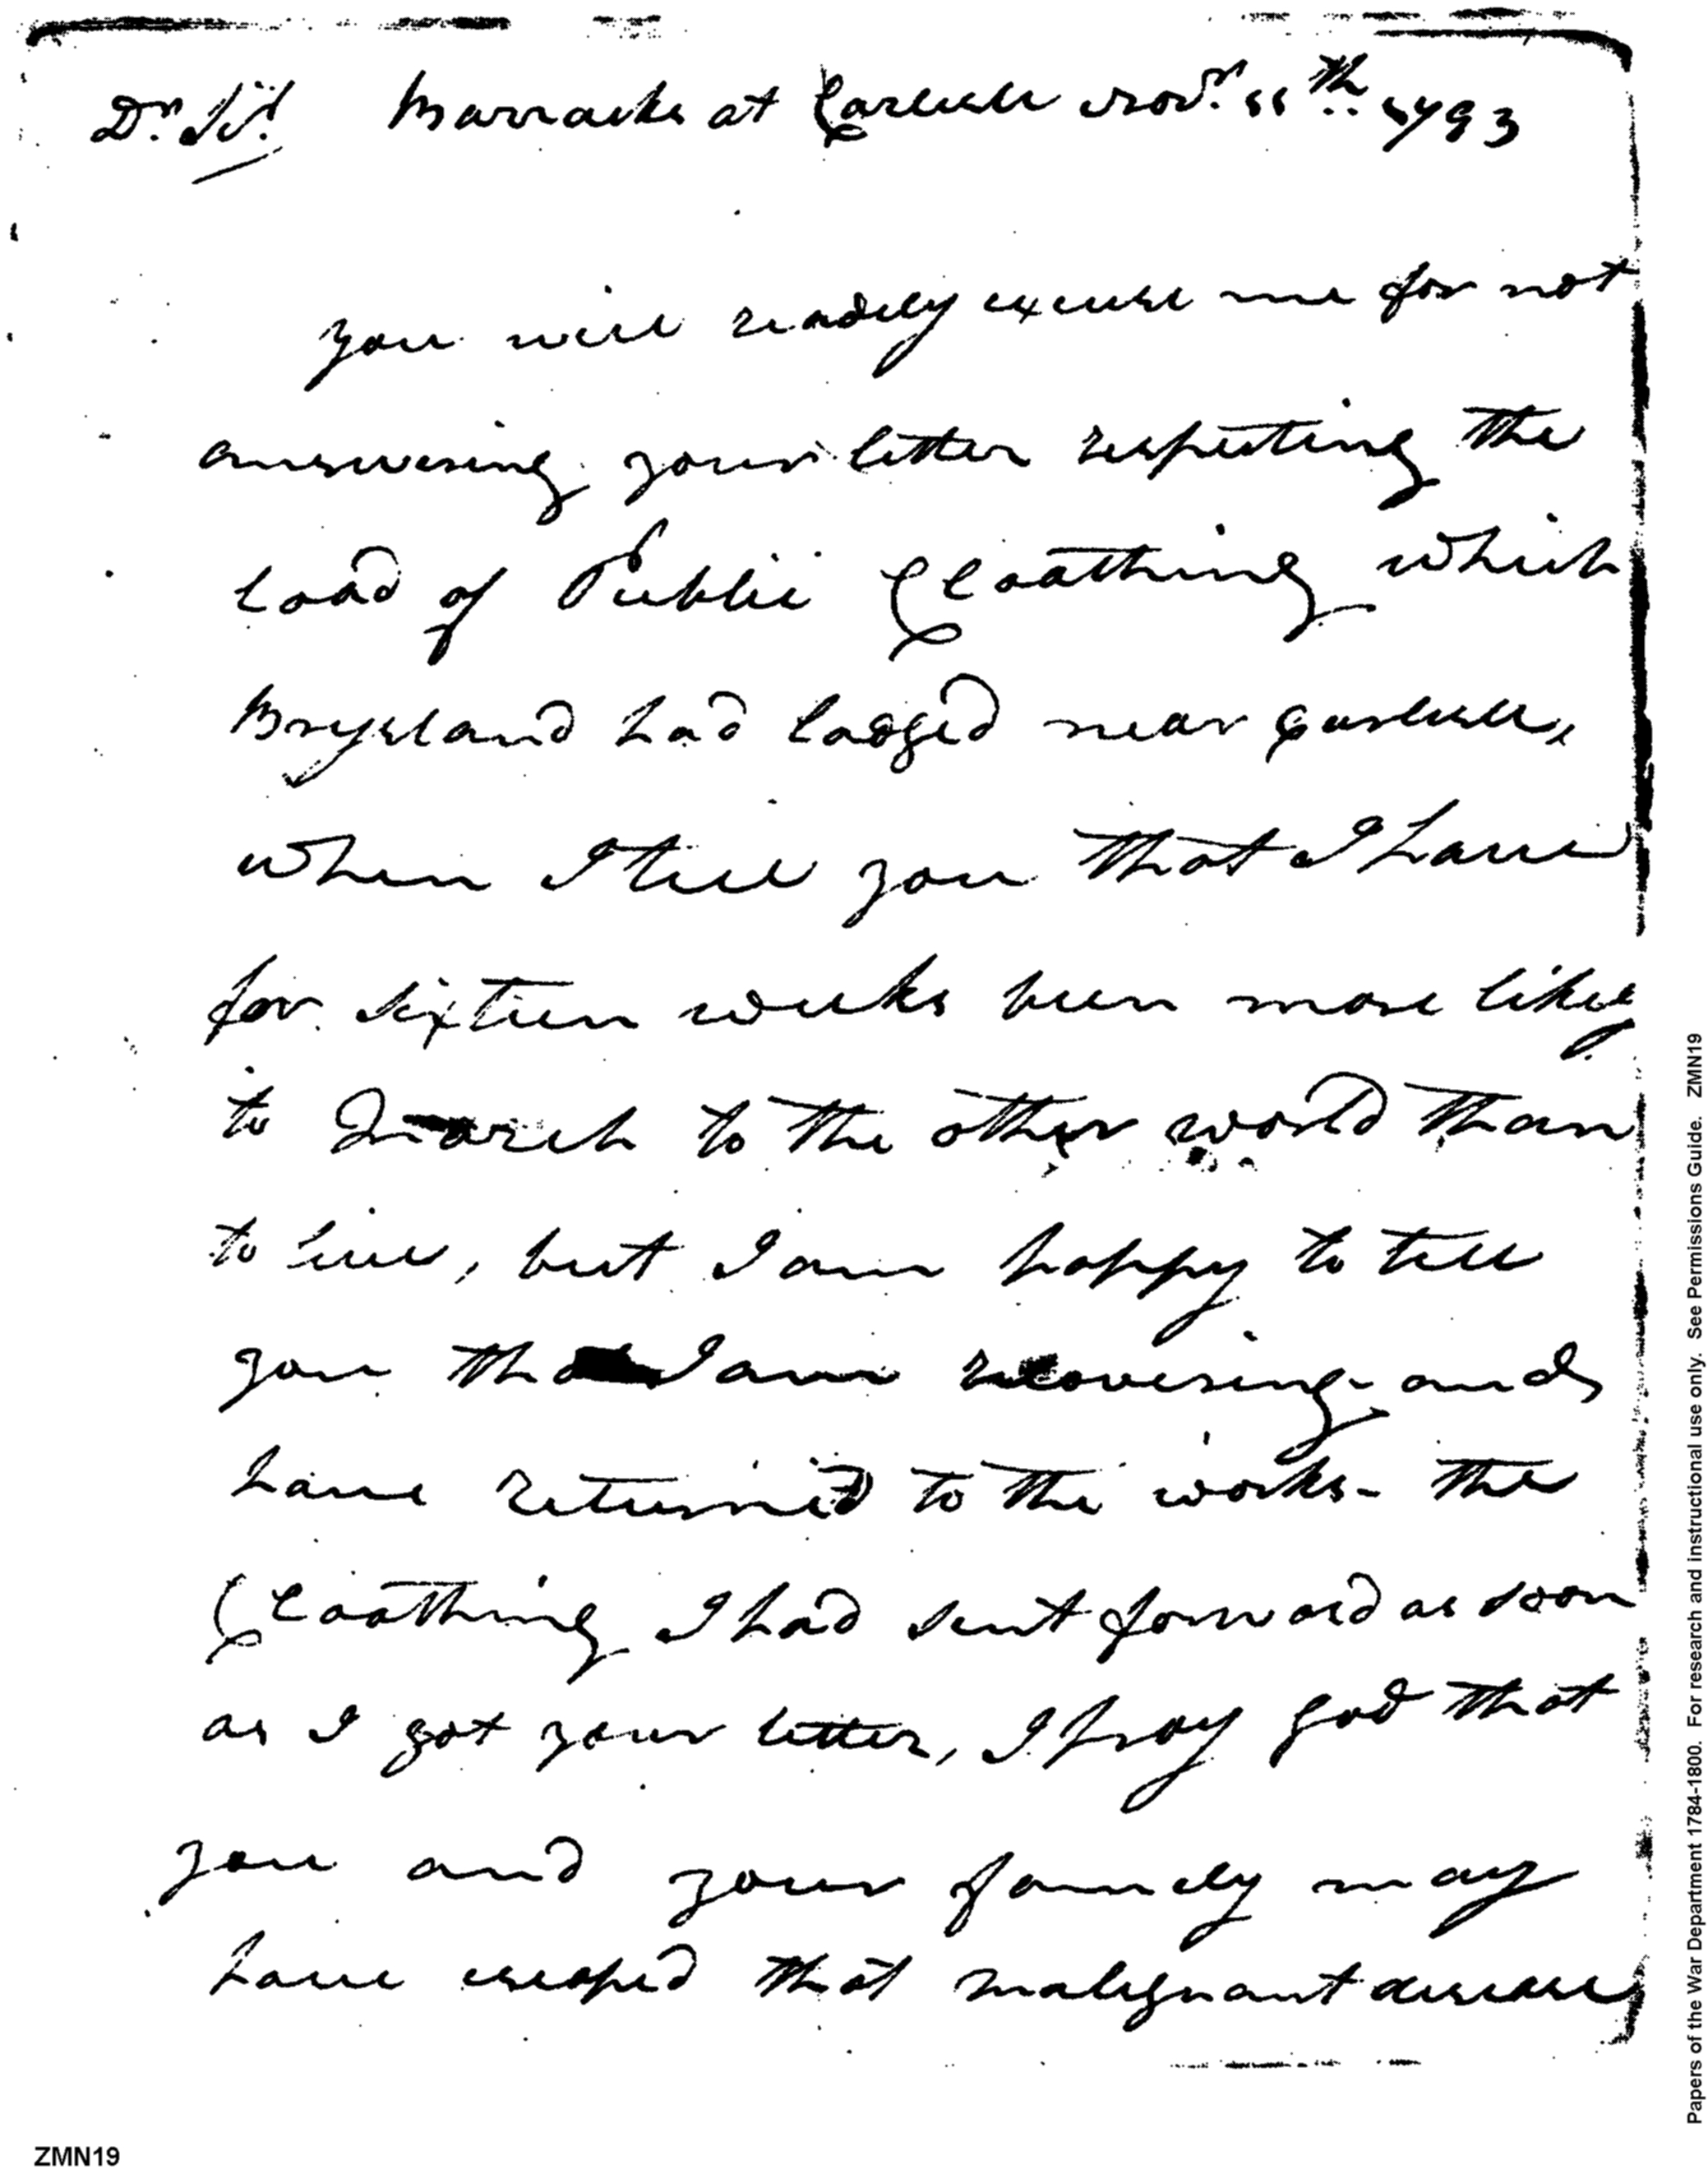 Dr. Sir. Barracks at Carlisle Novr. 11th.. 1793
you will readily excuse me for not
answering your letter respecting the
load of Public Cloathing which
Bryseland had lodged near Carlisle,
when I tell you that I have
for sixteen weeks been more likely
to March to the other world than
to live, but I am happy to tell
you that I am recovering and
have returned to the works - the
Cloathing I had sent forward as soon
as I got your letter, I pray god that
you and your family may
have escaped that malignant disease
ZMN19
Papers of the War Department 1784-1800. For research and instructional use only. See Permissions Guide. ZMN19